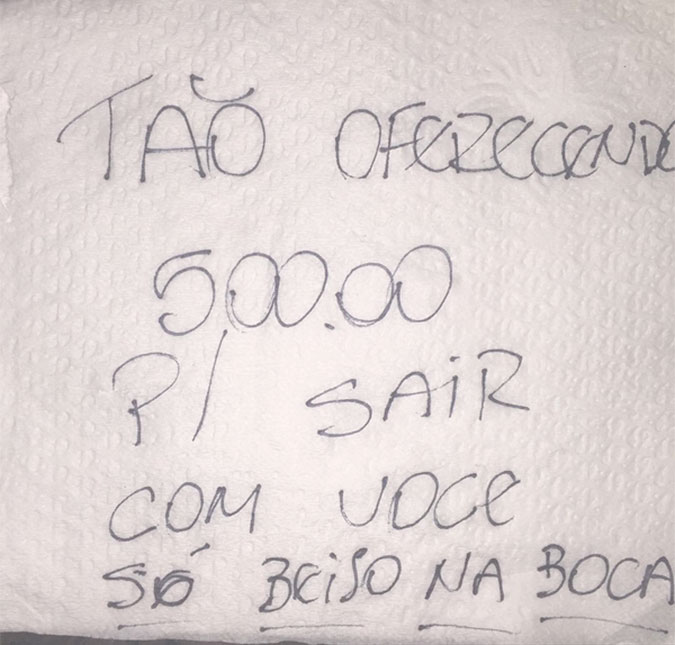 TAÕ OFERECENDO
500.00
P/ SAIR
COM VOCE
SÓ BEIJO NA BOCA